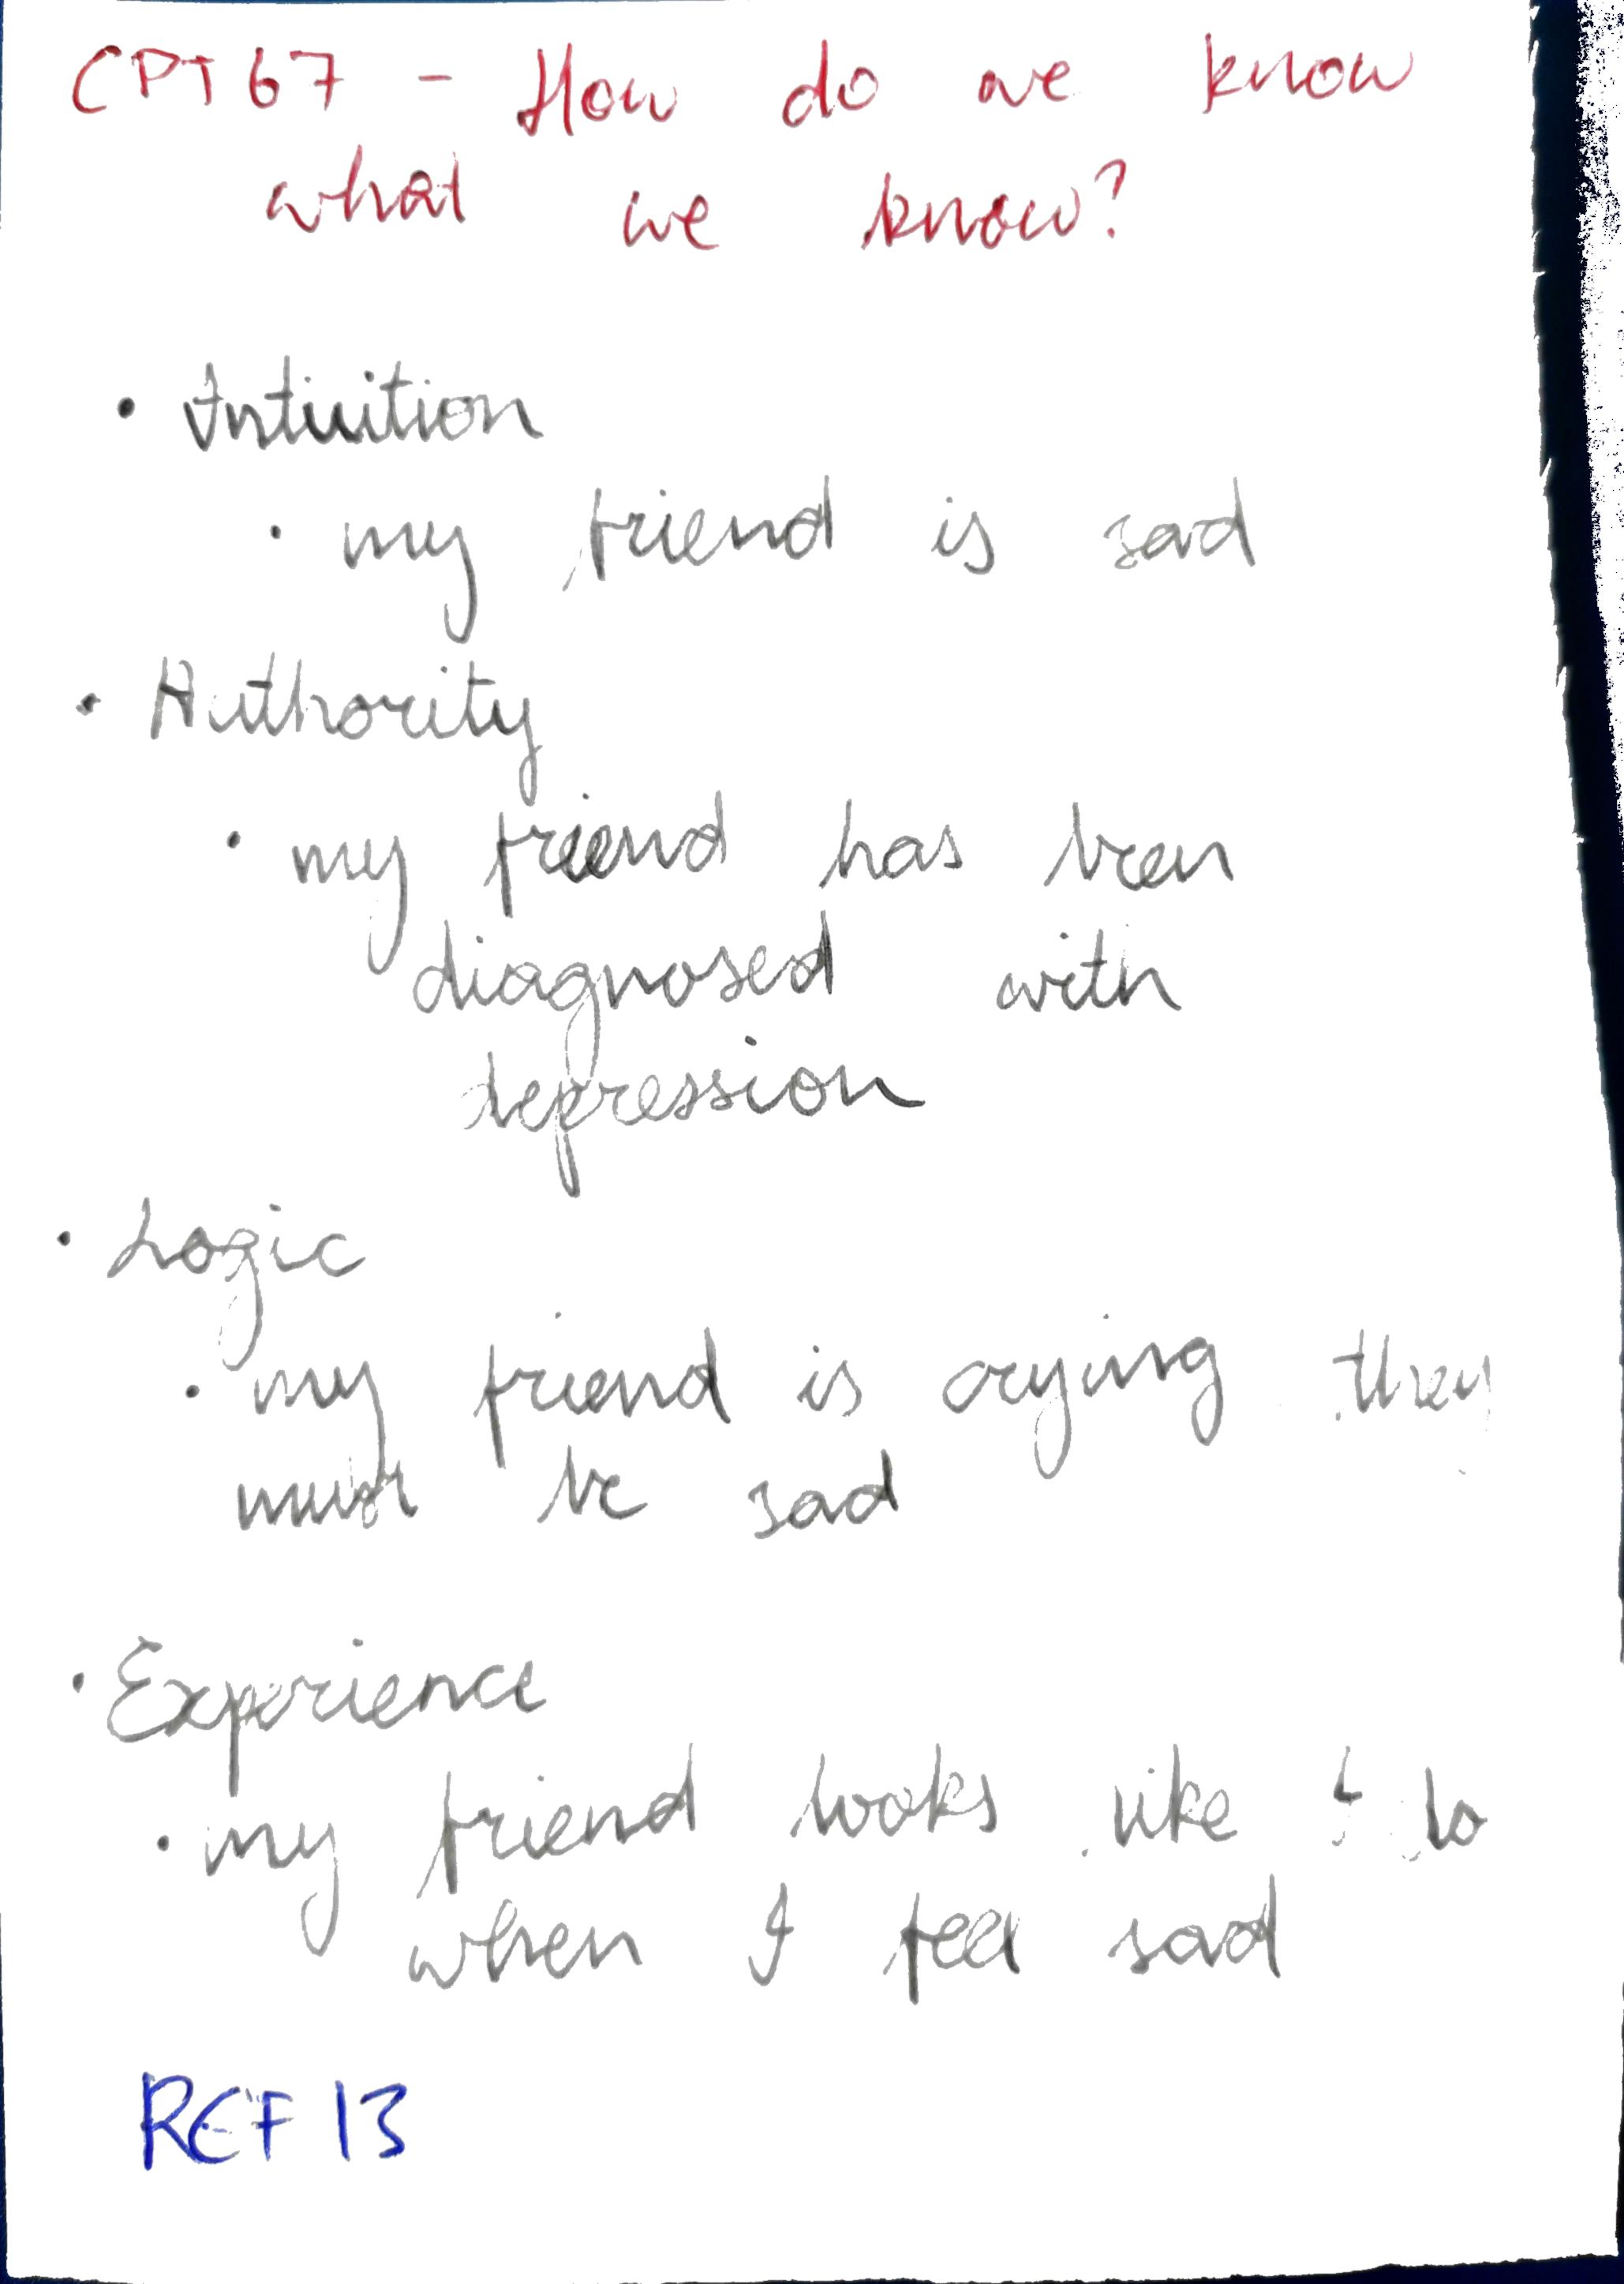 CPT67 - How do we know
what we know?
• Intuition
• my friend is sad
• Authority
• my friend has been
diagnosed with
depression
• Logic
• my friend is crying they
must be sad
• Experience
• my friend looks like I do
when I feel sad
REF 13